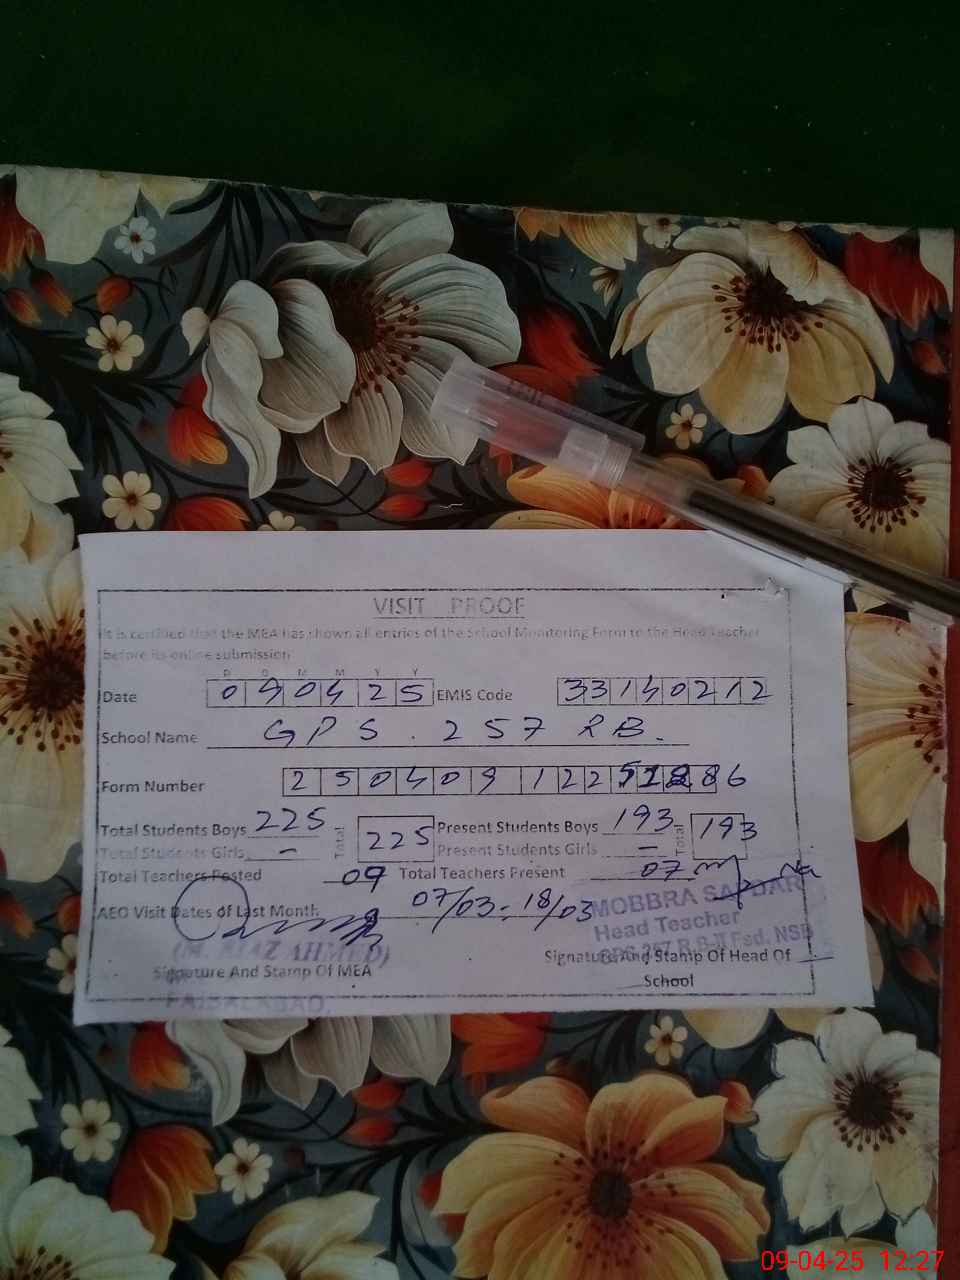 VISIT PROOF
It is certified that the MEA has shown all entries of the School Monitoring Form to the Head Teacher
before its online submission
D D M M Y Y
Date 090425 EMIS Code 33140212
School Name GPS. 257 RB.
Form Number 2504091225
Total Students Boys 225 Total 225 Present Students Boys 193 Total 193
Total Students Girls - Present Students Girls -
Total Teachers Posted 09 Total Teachers Present 07
AEO Visit Dates of Last Month 07/03 - 18/03
MOBBRA SAFDAR
Head Teacher
GPS 257 R.B-II Fsd. NSB
(M. RIAZ AHMED)
Signature And Stamp Of MEA Signature And Stamp Of Head Of
School
FAISALABAD.
09-04-25 12:27